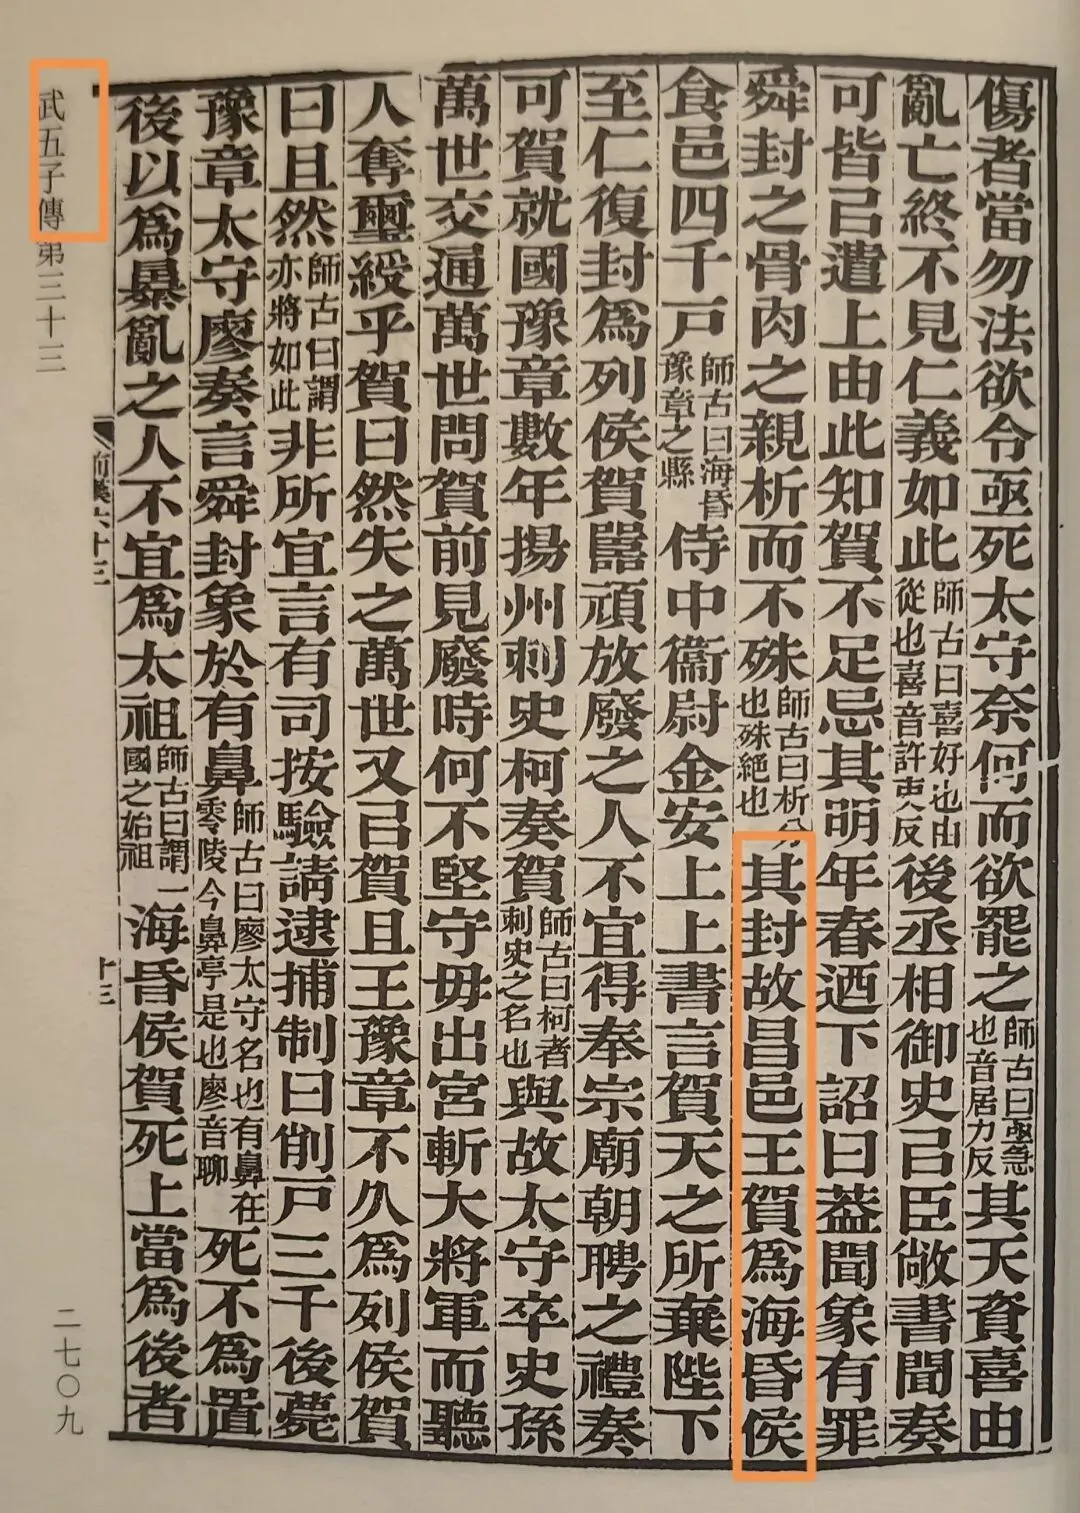 傷者當勿法欲令亟死太守奈何而欲罷之師古曰亟急也音居力反其天資喜由
亂亡終不見仁義如此師古曰喜好也由從也喜音許吏反後丞相御史㠯臣敞書聞奏
可皆㠯遣上由此知賀不足忌其明年春迺下詔曰蓋聞象有罪
舜封之骨肉之親析而不殊師古曰析分也殊絕也其封故昌邑王賀爲海昏侯
食邑四千戶師古曰海昏豫章之縣侍中衞尉金安上上書言賀天之所棄陛下
至仁復封爲列侯賀嚚頑放廢之人不宜得奉宗廟朝聘之禮奏
可賀就國豫章數年揚州刺史柯奏賀師古曰柯者刺史之名也與故太守卒史孫
萬世交通萬世問賀前見廢時何不堅守毋出宮斬大將軍而聽
人奪璽綬乎賀曰然失之萬世又㠯賀且王豫章不久爲列侯賀
曰且然師古曰謂亦將如此非所宜言有司按驗請逮捕制曰削戶三千後薨
豫章太守廖奏言舜封象於有鼻師古曰廖太守名也有鼻在零陵今鼻亭是也廖音聊死不爲置
後以爲暴亂之人不宜爲太祖師古曰謂一國之始祖海昏侯賀死上當爲後者
前漢六十三
十三
武五子傳第三十三
二七〇九